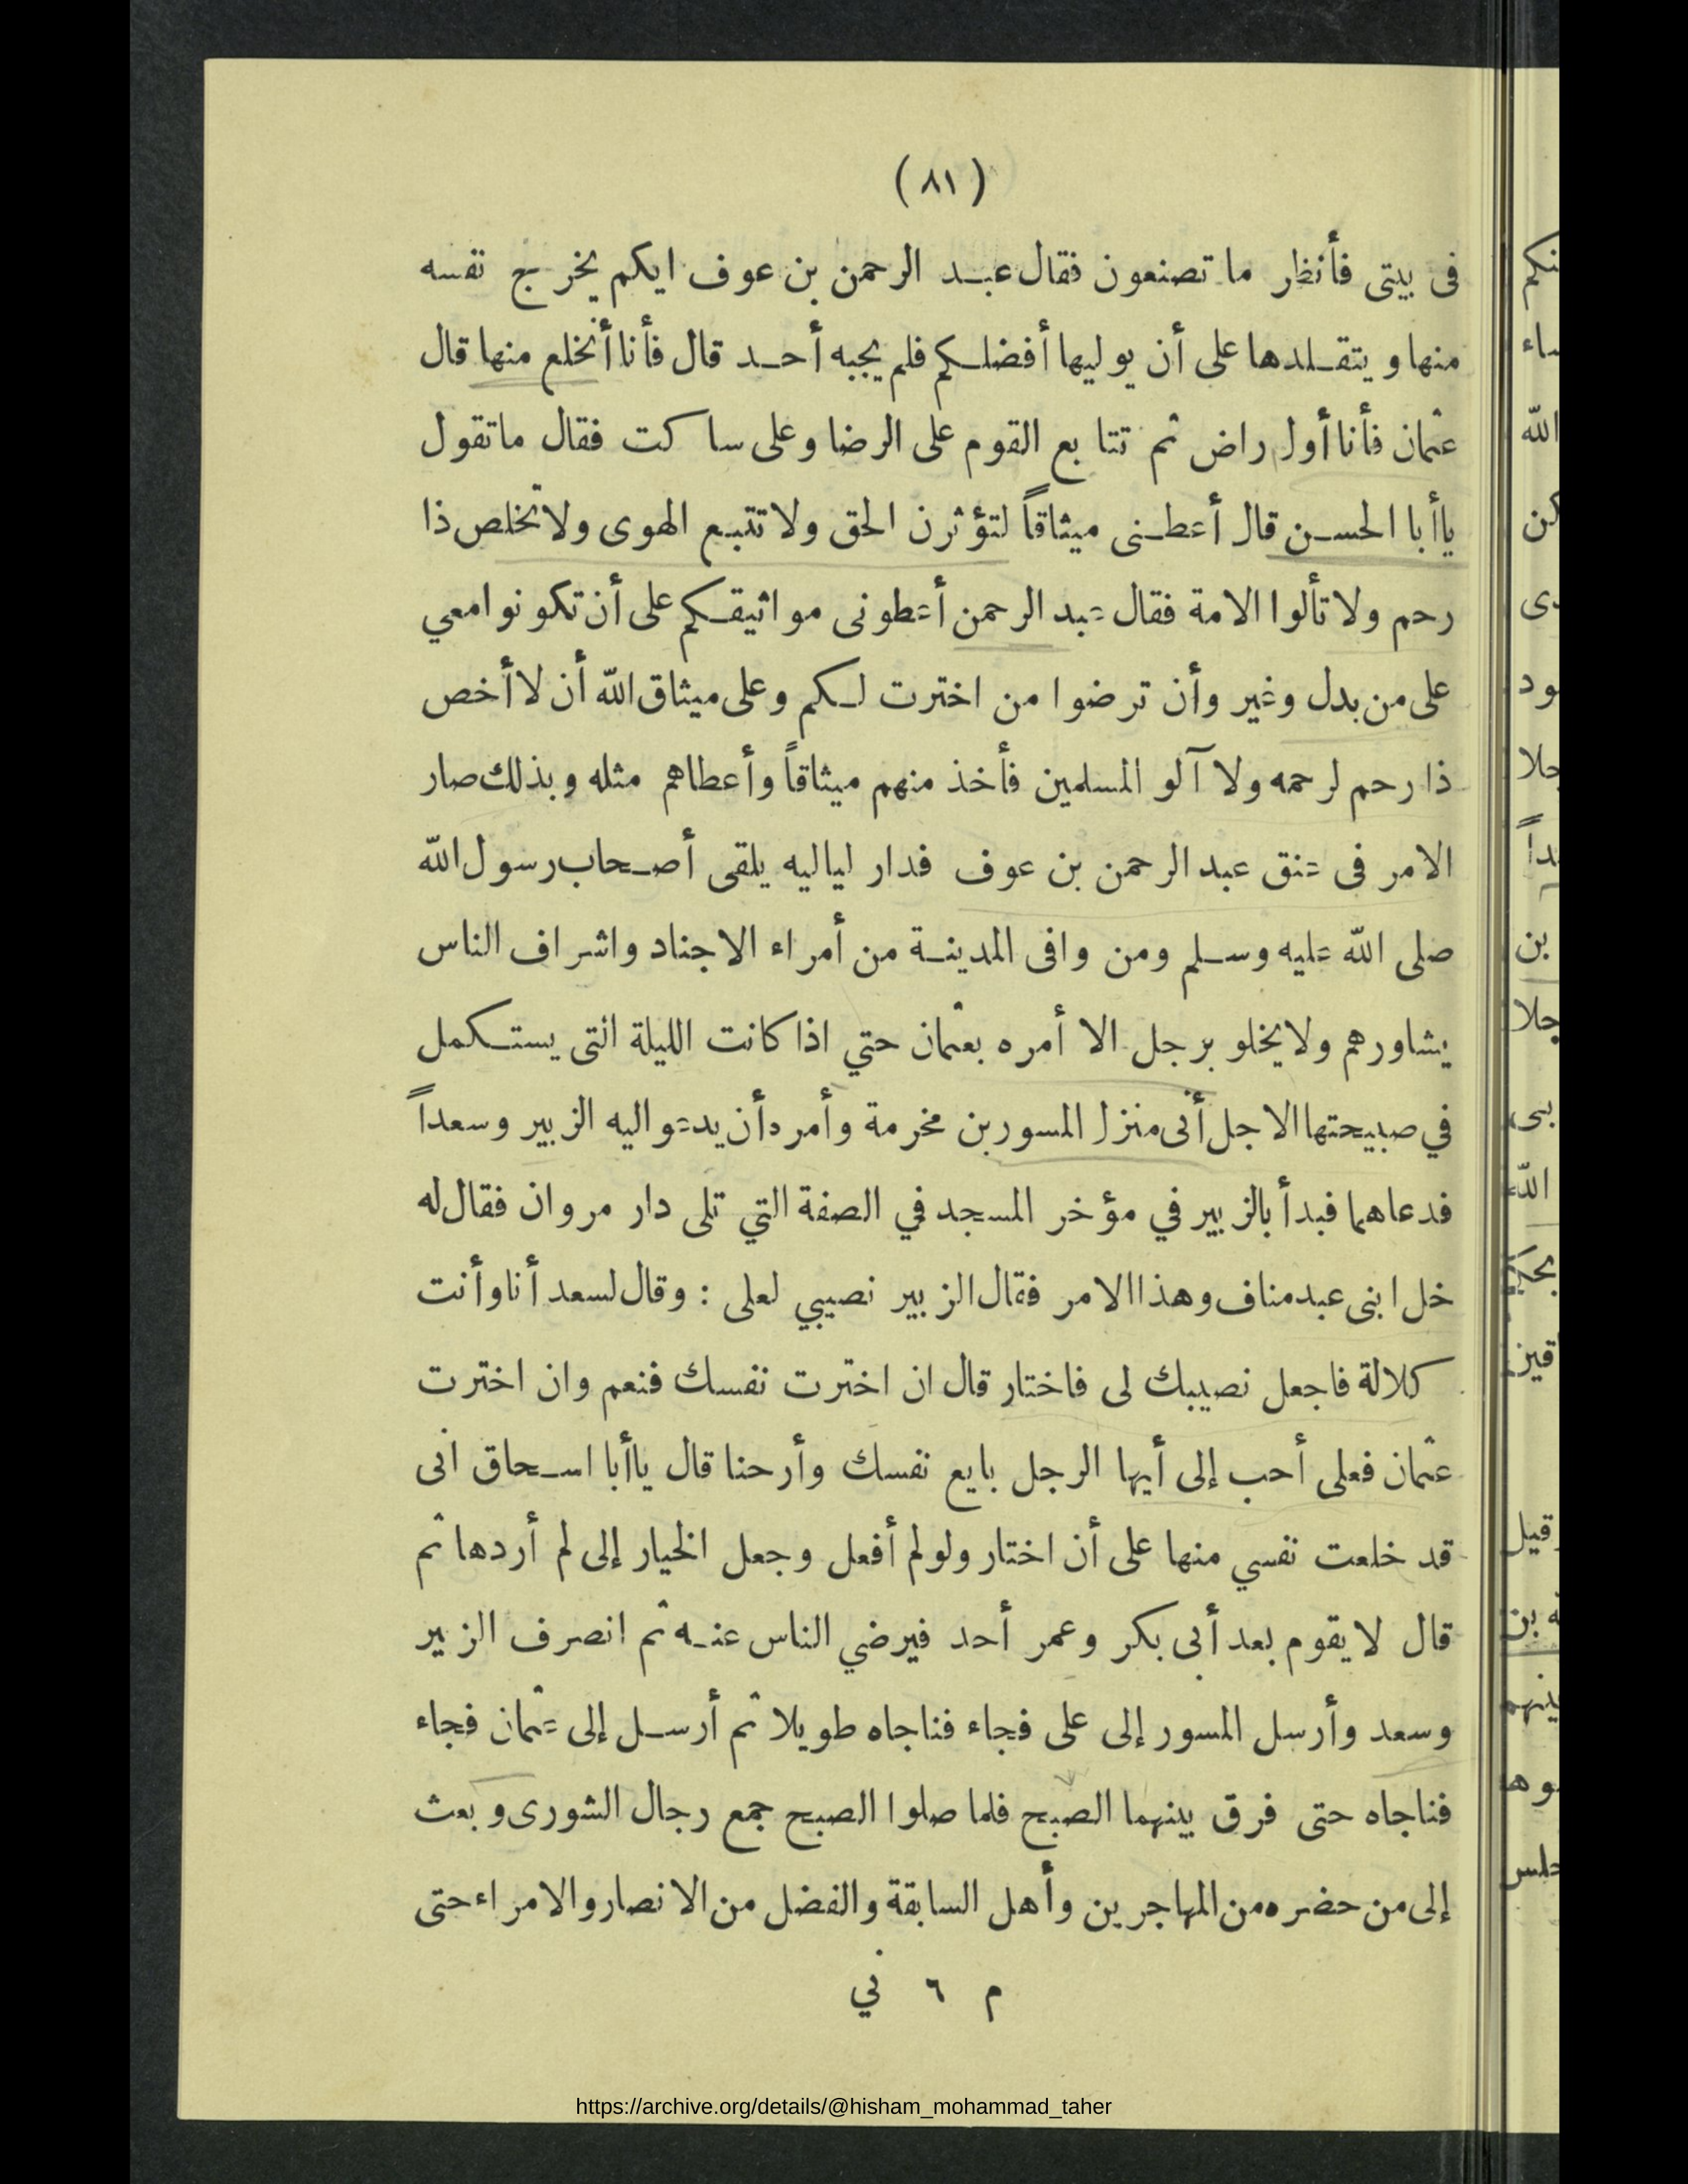 (٨١)
فى بيتى فأنظر ما تصنعون فقال عبد الرحمن بن عوف ايكم يخرج نفسه
منها ويتقلدها على أن يوليها أفضلكم فلم يجبه أحد قال فأنا أنخلع منها قال
عثمان فأنا أول راض ثم تتابع القوم على الرضا وعلى ساكت فقال ما تقول
يا أبا الحسن قال أعطنى ميثاقاً لتؤثرن الحق ولا تتبع الهوى ولا تخلص ذا
رحم ولا تألوا الامة فقال عبد الرحمن أعطونى مواثيقكم على أن تكونوا معي
على من بدل وغير وأن ترضوا من اخترت لكم وعلى ميثاق الله أن لا أخص
ذا رحم لرحمه ولا آلو المسلمين فأخذ منهم ميثاقاً وأعطاهم مثله وبذلك صار
الامر فى عنق عبد الرحمن بن عوف فدار لياليه يلقى أصحاب رسول الله
صلى الله عليه وسلم ومن وافى المدينة من أمراء الاجناد واشراف الناس
يشاورهم ولا يخلو برجل الا أمره بعثمان حتي اذا كانت الليلة التى يستكمل
في صبيحتها الاجل أتى منزل المسور بن مخرمة وأمره أن يدعو اليه الزبير وسعداً
فدعاهما فبدأ بالزبير في مؤخر المسجد في الصفة التي تلى دار مروان فقال له
خل ابنى عبد مناف وهذا الامر فقال الزبير نصيبي لعلى : وقال لسعد أنا وأنت
كلالة فاجعل نصيبك لى فاختار قال ان اخترت نفسك فنعم وان اخترت
عثمان فعلى أحب إلى أيها الرجل بايع نفسك وأرحنا قال يا أبا اسحاق انى
قد خلعت نفسي منها على أن اختار ولو لم أفعل وجعل الخيار إلى لم أردها ثم
قال لا يقوم بعد أبى بكر وعمر أحد فيرضي الناس عنه ثم انصرف الزبير
وسعد وأرسل المسور إلى على فجاء فناجاه طويلا ثم أرسل إلى عثمان فجاء
فناجاه حتى فرق بينهما الصبح فلما صلوا الصبح جمع رجال الشورى وبعث
إلى من حضره من المهاجرين وأهل السابقة والفضل من الانصار والامراء حتى
م ٦ ني
https://archive.org/details/@hisham_mohammad_taher